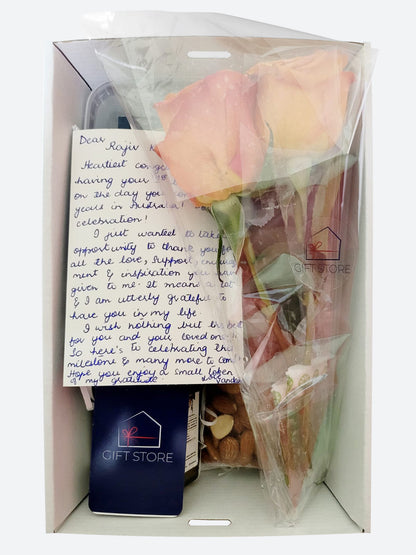 Dear
Rajiv
Heartiest
having your
on the day you
years in Australia!
celebration!
I just wanted to take
opportunity to thank you for
all the love, support,
ment & inspiration you
given to me. It means a lot
& I am utterly grateful to
have you in my life.
I wish nothing but the best
for you and your loved
So here's to celebrating this
milestone & many more to
Hope you enjoy a small token
of my gratitude
GIFT STORE
GIFT STORE